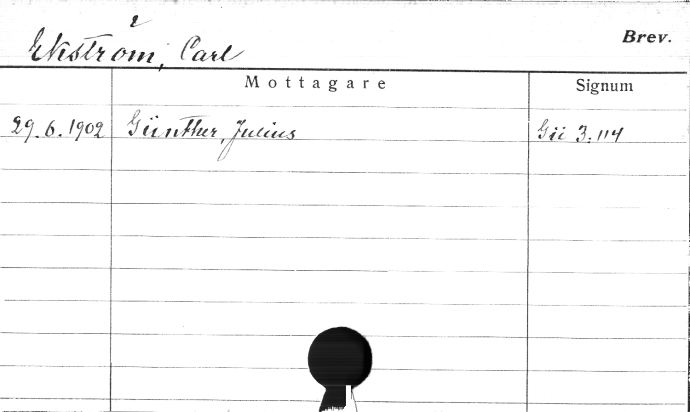 2
Ekström, Carl
Brev.
Mottagare
Signum
29.6.1902 Günther, Julius Gü 3:114